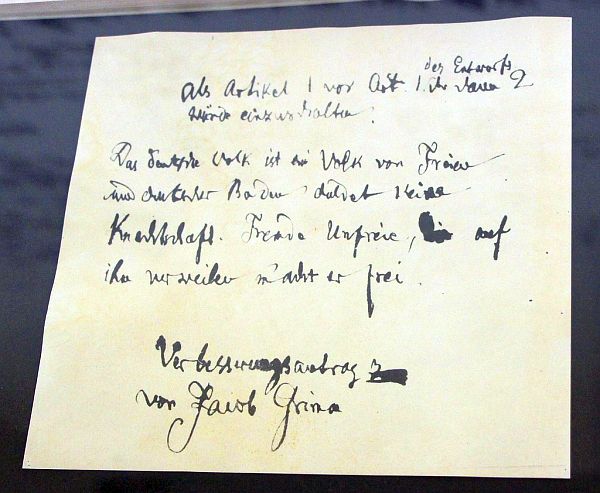 des Entwurfs
als Artikel 1 vor Art. 1. der dann 2
würde einzuschalten:
Das deutsche Volk ist ein Volk von Freien
und deutscher Boden duldet keine
Knechtschaft. Fremde Unfreie, die auf
ihm verweilen macht er frei.
Verbesserungsantrag
von Jacob Grimm